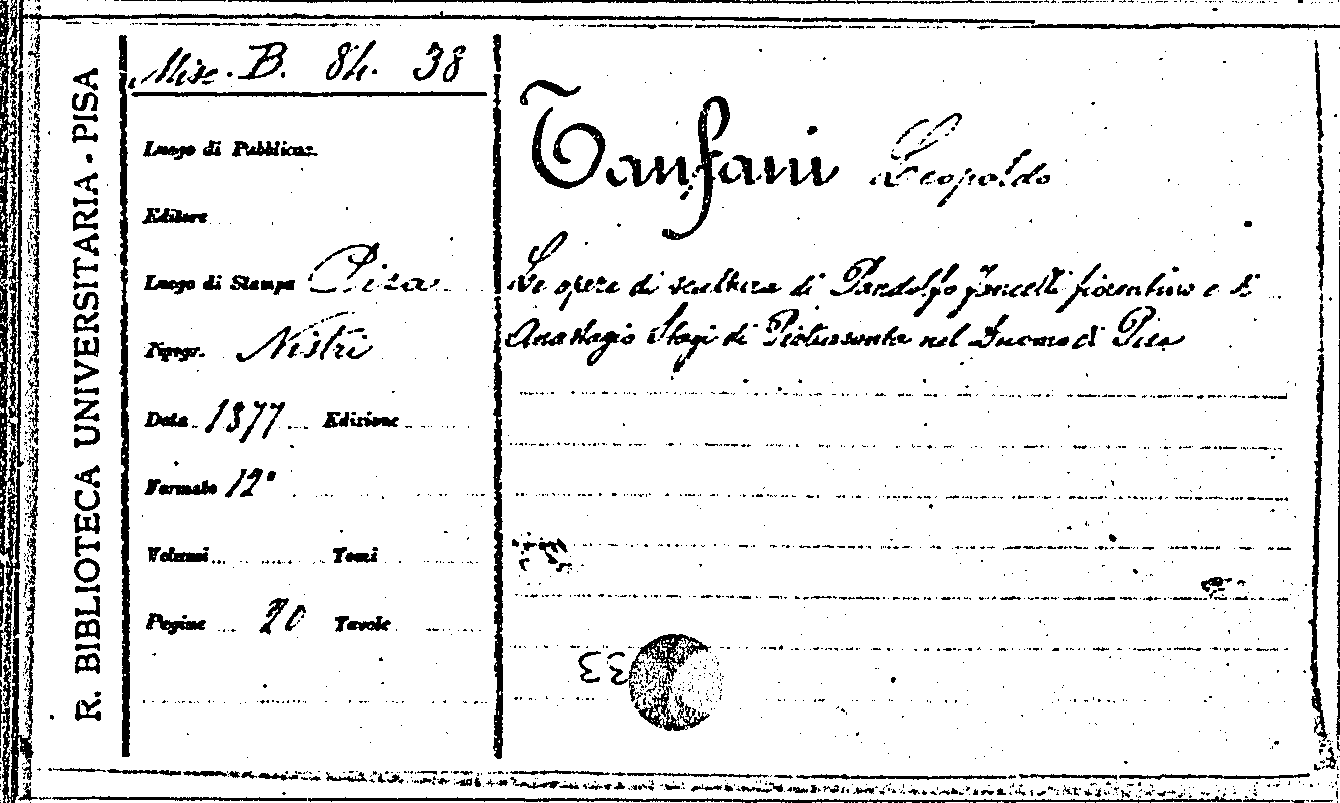 R. BIBLIOTECA UNIVERSITARIA - PISA
Misc. B. 84. 38
Luogo di Pubblicaz.
Editore
Luogo di Stampa Pisa
Tipogr. Nistri
Data 1877 Edizione
Formato 12°
Volumi Tomi
Pagine 20 Tavole
Tanfani Leopoldo
Le opere di scultura di Pandolfo Fancelli fiorentino e di
Anastagio Stagi di Pietrasanta nel Duomo di Pisa
33